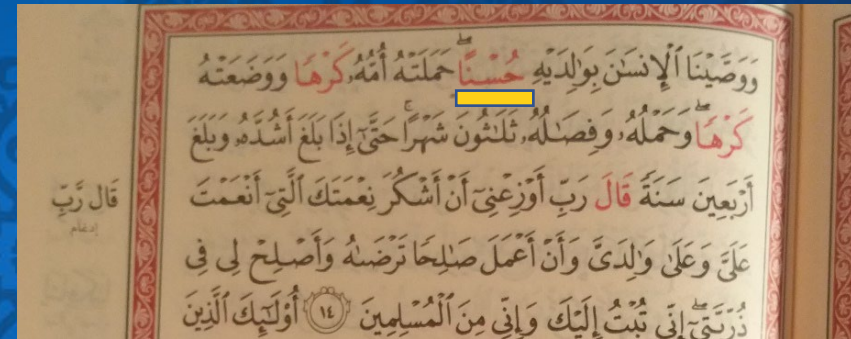 وَوَصَّيْنَا ٱلْإِنسَٰنَ بِوَٰلِدَيْهِ حُسْنًاۖ حَمَلَتْهُ أُمُّهُۥ كَرْهًا وَوَضَعَتْهُ
كَرْهًاۖ وَحَمْلُهُۥ وَفِصَٰلُهُۥ ثَلَٰثُونَ شَهْرًاۚ حَتَّىٰٓ إِذَا بَلَغَ أَشُدَّهُۥ وَبَلَغَ
أَرْبَعِينَ سَنَةً قَالَ رَبِّ أَوْزِعْنِىٓ أَنْ أَشْكُرَ نِعْمَتَكَ ٱلَّتِىٓ أَنْعَمْتَ
قَال رَّبِّ
إدغام
عَلَىَّ وَعَلَىٰ وَٰلِدَىَّ وَأَنْ أَعْمَلَ صَٰلِحًا تَرْضَىٰهُ وَأَصْلِحْ لِى فِى
ذُرِّيَّتِىٓۖ إِنِّى تُبْتُ إِلَيْكَ وَإِنِّى مِنَ ٱلْمُسْلِمِينَ ١٤ أُو۟لَٰٓئِكَ ٱلَّذِينَ